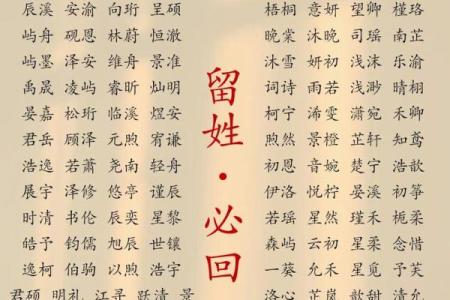 辰溪 安渝 向珩 呈硕
屿舟 砚恩 林蔚 恒澈
屿墨 泽安 维舟 景淮
禹晟 凌屿 睿昕 灿明
晏嘉 松珩 临溪 煜安
君岳 顾泽 元煦 宥谦
浩逸 若萧 尧南 轻舟
展宇 泽修 悠亭 谨辰
时清 书伦 辰奕 星黎
皓予 钧儒 旭辰 世镶
逸柯 伯驹 以煦 浩宇
君硕 明礼 江寻 跃清 景
留姓·必回
梧桐 意妍 望卿 槿珞
晚棠 沐晚 司瑶 南芷
沐雪 妍初 浅沫 乐渝
词诗 雨若 潇渺 晴栩
柯宁 浠雯 潇宛 禾卿
煦然 景橙 芷轩 知鸢
初恩 音婉 楚宁 浩歆
伊洛 悦柠 晏溪 初筝
若瑶 星然 瑾禾 栀柔
森屿 云初 星柔 念惜
一葵 允禾 星苑 予芙
清沅 芷岚 歆甜 清允